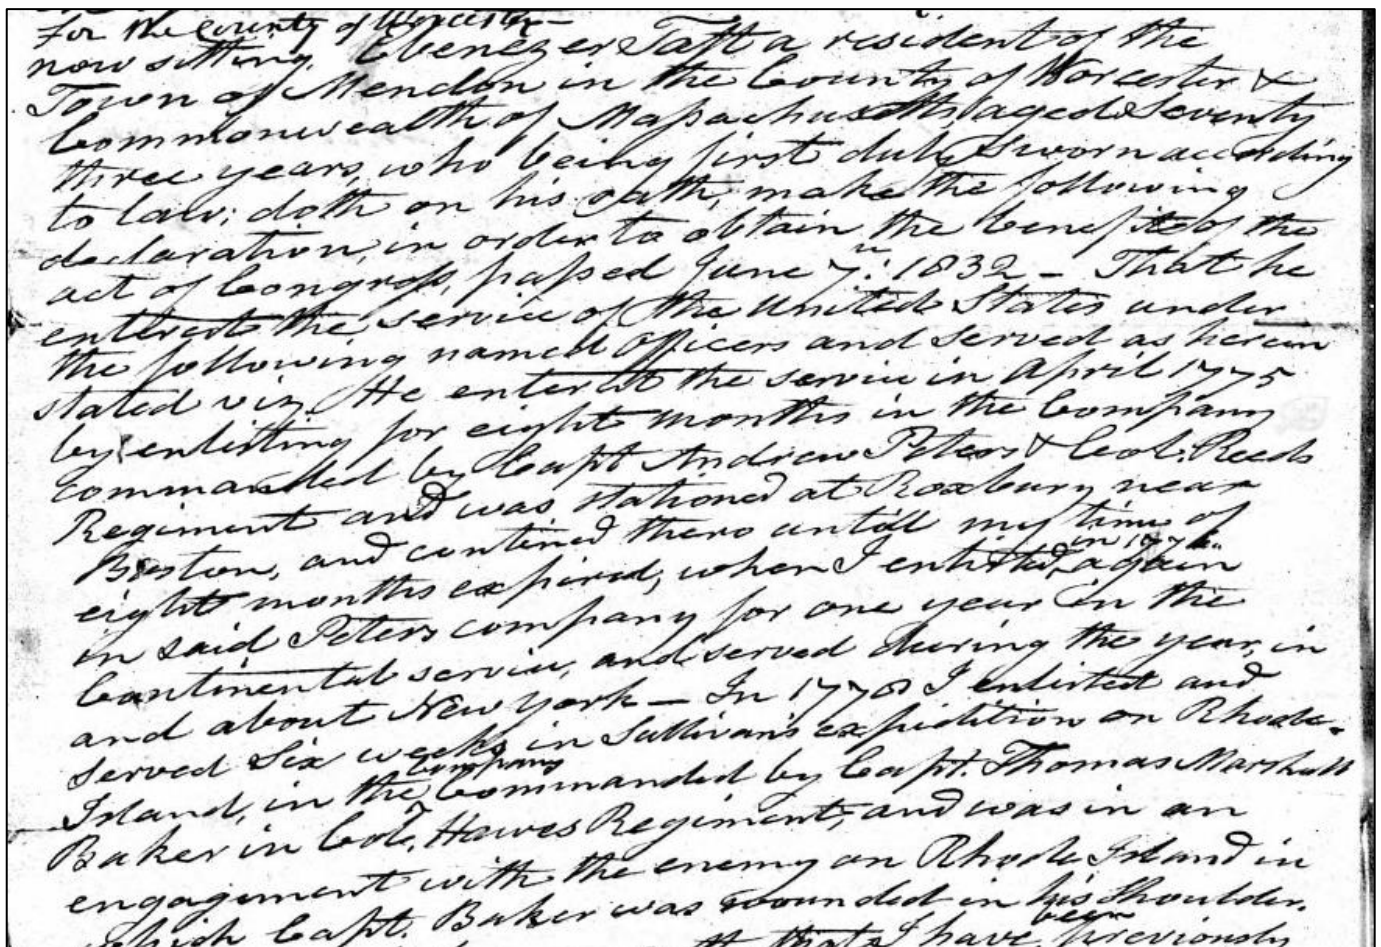 for the County of Worcester
now sitting. Ebenezer Taft a resident of the
Town of Mendon in the County of Worcester &
Commonwealth of Massachusetts aged Seventy
three years, who being first duly Sworn according
to law; doth on his oath, make the following
declaration, in order to obtain the benefit of the
act of Congress, passed June 7th 1832 - That he
entered the service of the United States under
the following named officers and served as herein
stated viz. He entered the service in April 1775
by enlisting for eight months in the Company
commanded by Capt Andrew Peters & Col. Reeds
Regiment and was stationed at Roxbury near
Boston, and contined there untill my time of
eight months expired, when I enlisted in 1776 again
in said Peters company for one year in the
Continental service, and served during the year, in
and about New York - In 1778 I enlisted and
served Six weeks in Sullivan's expidition on Rhode
Island, in the Company Commanded by Capt. Thomas Marshall
Baker in Col. Hawes Regiment, and was in an
engagement with the enemy on Rhode Island in
which Capt. Baker was wounded in his shoulder.
that I have been previously